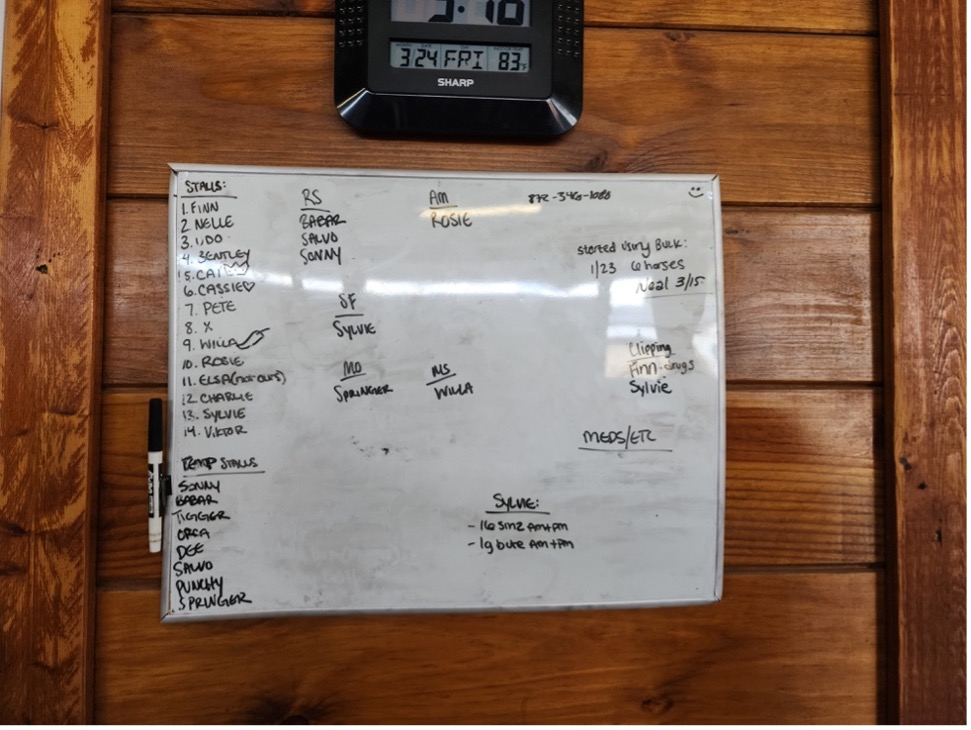 3 24 FRI 83°F
SHARP
STALLS:
1. FINN
2. NELLE
3. UDO
4. BENTLEY
5.
6. CASSIE♡
7. PETE
8. X
9. WILLA
10. ROSIE
11. ELSA (not ours)
12. CHARLIE
13. SYLVIE
14. VIKTOR
TEMP STALLS
SONNY
BABAR
TIGGER
ORCA
DEE
SALVO
PUNCHY
SPRINGER
RS
BABAR
SALVO
SONNY
SF
SYLVIE
MO
SPRINGER
MS
WILLA
AM
ROSIE
started using Bulk:
1/23 6 horses
Neal 3/15
Clipping
Finn - drugs
Sylvie
MEDS/ETC
SYLVIE:
- 16 smz am + pm
- 1g bute am + pm